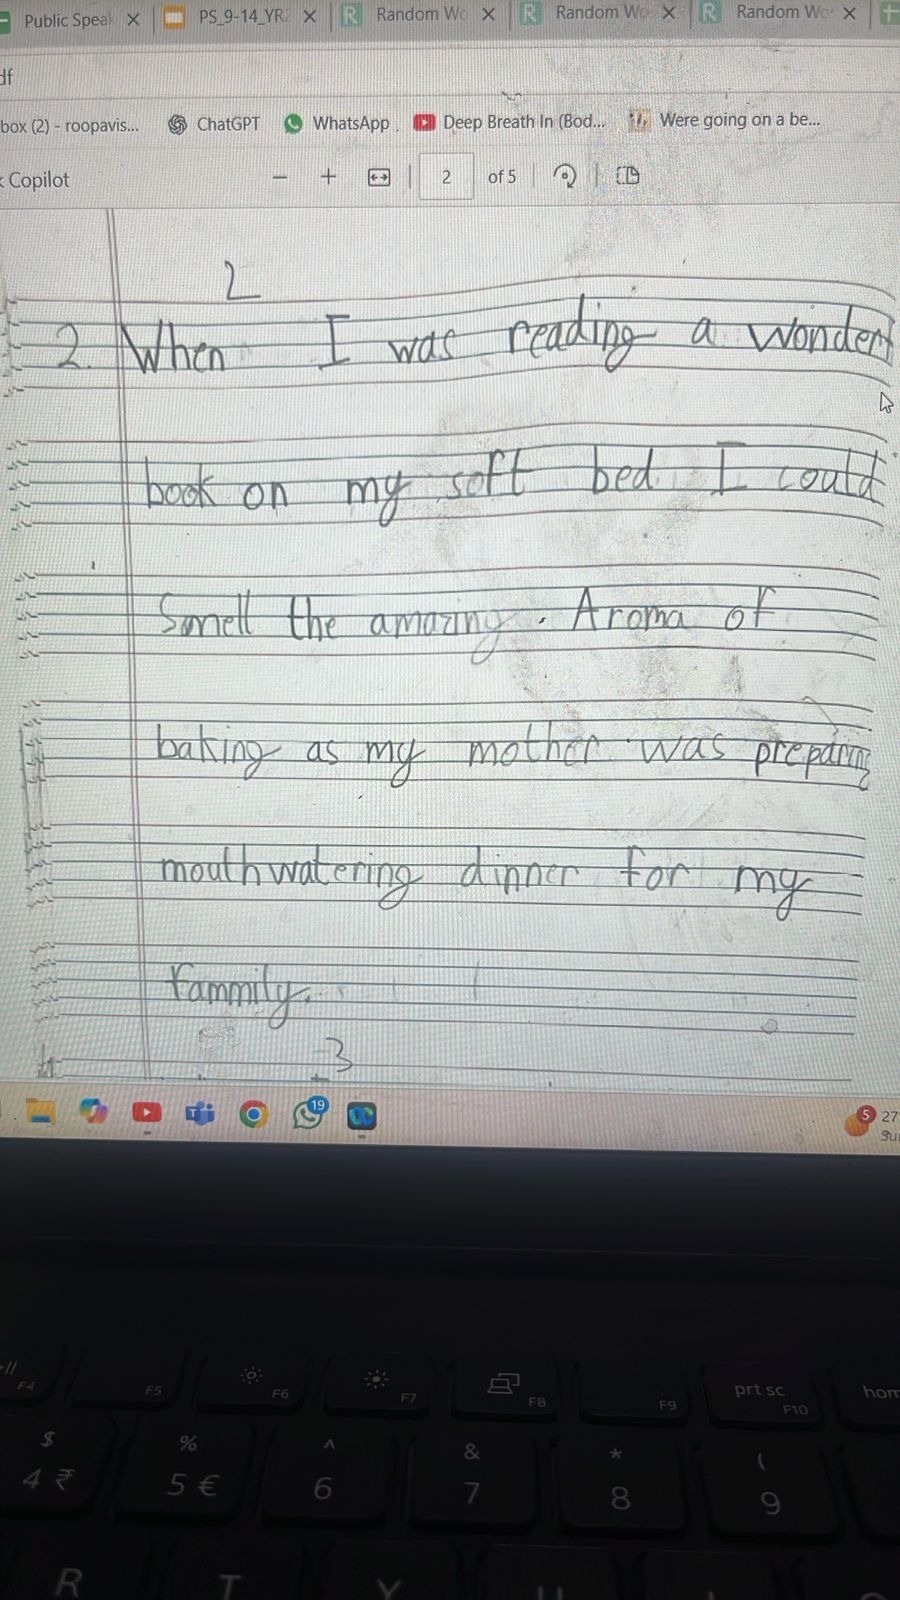 Public Speak
PS_9-14_YR2
Random Wo
Random Wo
Random Wo
df
box (2) - roopavis...
ChatGPT
WhatsApp
Deep Breath In (Bod...
Were going on a be...
Copilot
2
of 5
2
2. When I was reading a wonderf
book on my soft bed I could
Smell the amazing. Aroma of
baking as my mother was preparing
mouthwatering dinner for my
fammily.
3
19
5
27°
Su
F4
F5
F6
F7
F8
F9
prt sc
F10
hom
$
4 ₹
%
5 €
^
6
&
7
*
8
(
9
R
T
Y
U